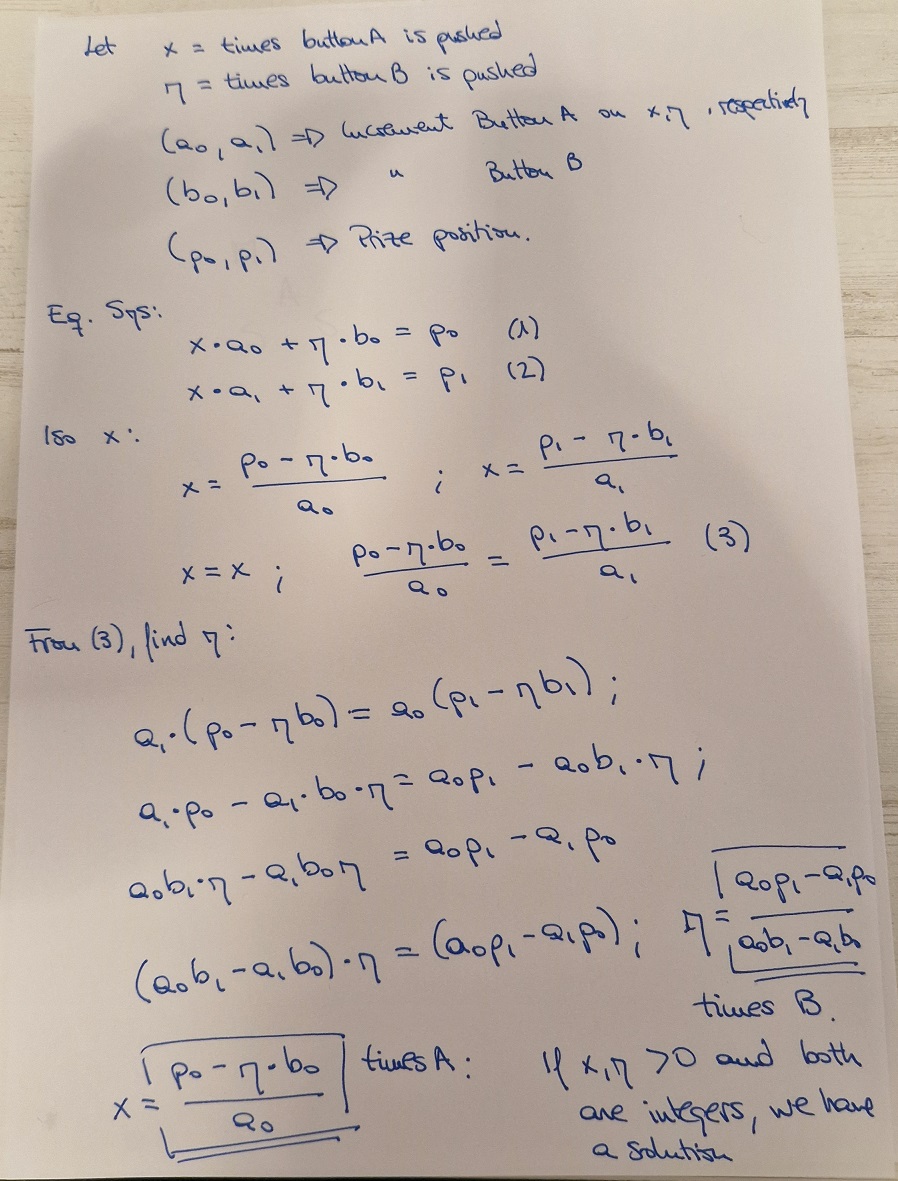 Let x = times button A is pushed
η = times button B is pushed
(a₀, a₁) ⇒ Increment Button A on x,η, respectively
(b₀, b₁) ⇒ " Button B
(p₀, p₁) ⇒ Prize position.
Eq. Sys:
x·a₀ + η·b₀ = p₀ (1)
x·a₁ + η·b₁ = p₁ (2)
Iso x:
x = (p₀ - η·b₀)/a₀ ; x = (p₁ - η·b₁)/a₁
x = x ; (p₀ - η·b₀)/a₀ = (p₁ - η·b₁)/a₁ (3)
From (3), find η:
a₁·(p₀ - ηb₀) = a₀(p₁ - ηb₁) ;
a₁·p₀ - a₁·b₀·η = a₀p₁ - a₀b₁·η ;
a₀b₁·η - a₁b₀η = a₀p₁ - a₁p₀
(a₀b₁ - a₁b₀)·η = (a₀p₁ - a₁p₀) ; η = (a₀p₁ - a₁p₀)/(a₀b₁ - a₁b₀)
times B.
x = (p₀ - η·b₀)/a₀ times A : If x,η > 0 and both
are integers, we have
a solution